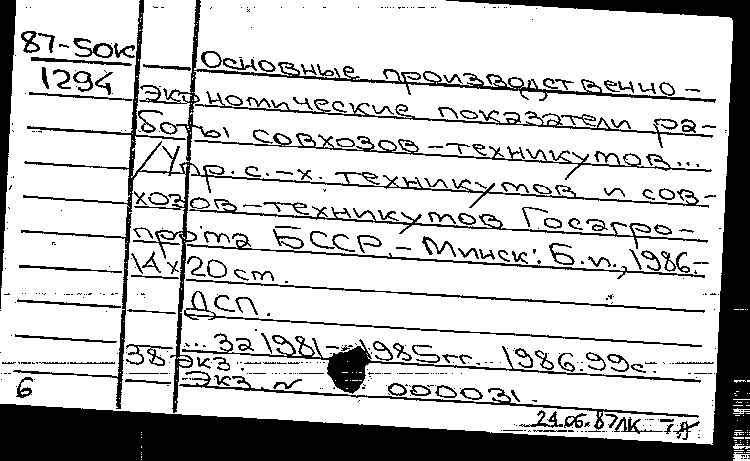 87-50к
1294
Основные производственно-
экономические показатели ра-
боты совхозов-техникумов...
/Упр. с.-х. техникумов и сов-
хозов-техникумов Госагро-
прома БССР.- Минск: Б.и., 1986.-
14х20 см.
ДСП.
... за 1981-1985гг. 1986. 99с.
38 экз.
Экз. N 000031.
6
24.06.87 ЛК